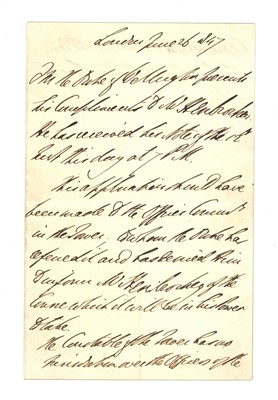 London June 26 1847
F M the Duke of Wellington presents
his Compliments to Mr
He has received his Note of the
Inst this day at 7 P.M.
This application should have
been made to the Officer Commg
in the Tower. To whom the Duke has
referred it and has desired him
to inform Mr of the
course which it will be in his Power
to take
The Constable of the Tower has no
over the Officers of the